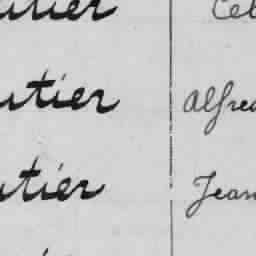 utier Cel
utier Alfred
utier Jean